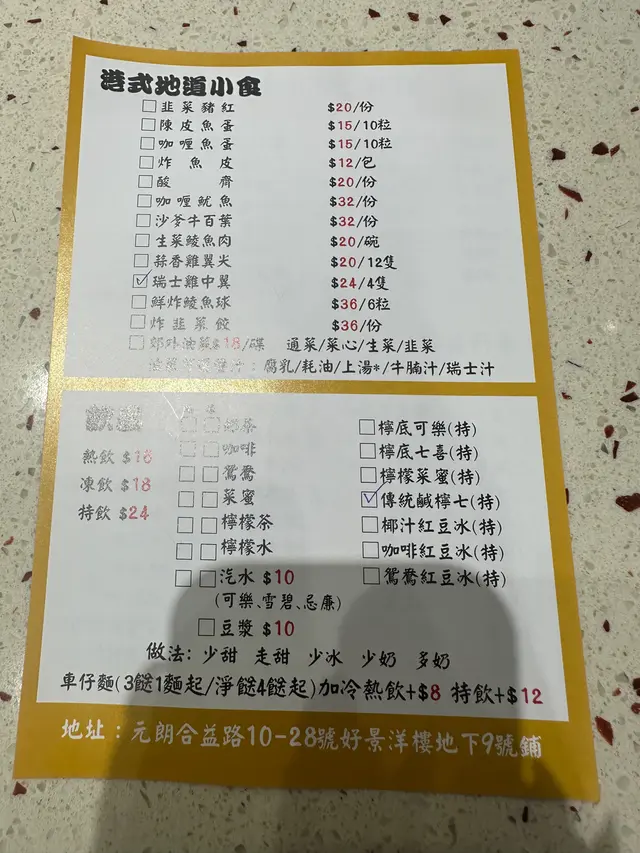 港式地道小食
韭菜豬紅 $20/份
陳皮魚蛋 $15/10粒
咖喱魚蛋 $15/10粒
炸魚皮 $12/包
酸齊 $20/份
咖喱魷魚 $32/份
沙爹牛百葉 $32/份
生菜鯪魚肉 $20/碗
蒜香雞翼尖 $20/12隻
瑞士雞中翼 $24/4隻
鮮炸鯪魚球 $36/6粒
炸韭菜餃 $36/份
郊外油菜$18/碟 通菜/菜心/生菜/韭菜
汁:腐乳/耗油/上湯*/牛腩汁/瑞士汁
熱飲 $16
凍飲 $18
特飲 $24
紅茶
咖啡
鴛鴦
菜蜜
檸檬茶
檸檬水
汽水 $10
(可樂、雪碧、忌廉)
豆漿 $10
檸底可樂(特)
檸底七喜(特)
檸檬菜蜜(特)
傳統鹹檸七(特)
椰汁紅豆冰(特)
咖啡紅豆冰(特)
鴛鴦紅豆冰(特)
做法: 少甜 走甜 少冰 少奶 多奶
車仔麵(3餸1麵起/淨餸4餸起)加冷熱飲+$8 特飲+$12
地址:元朗合益路10-28號好景洋樓地下9號鋪